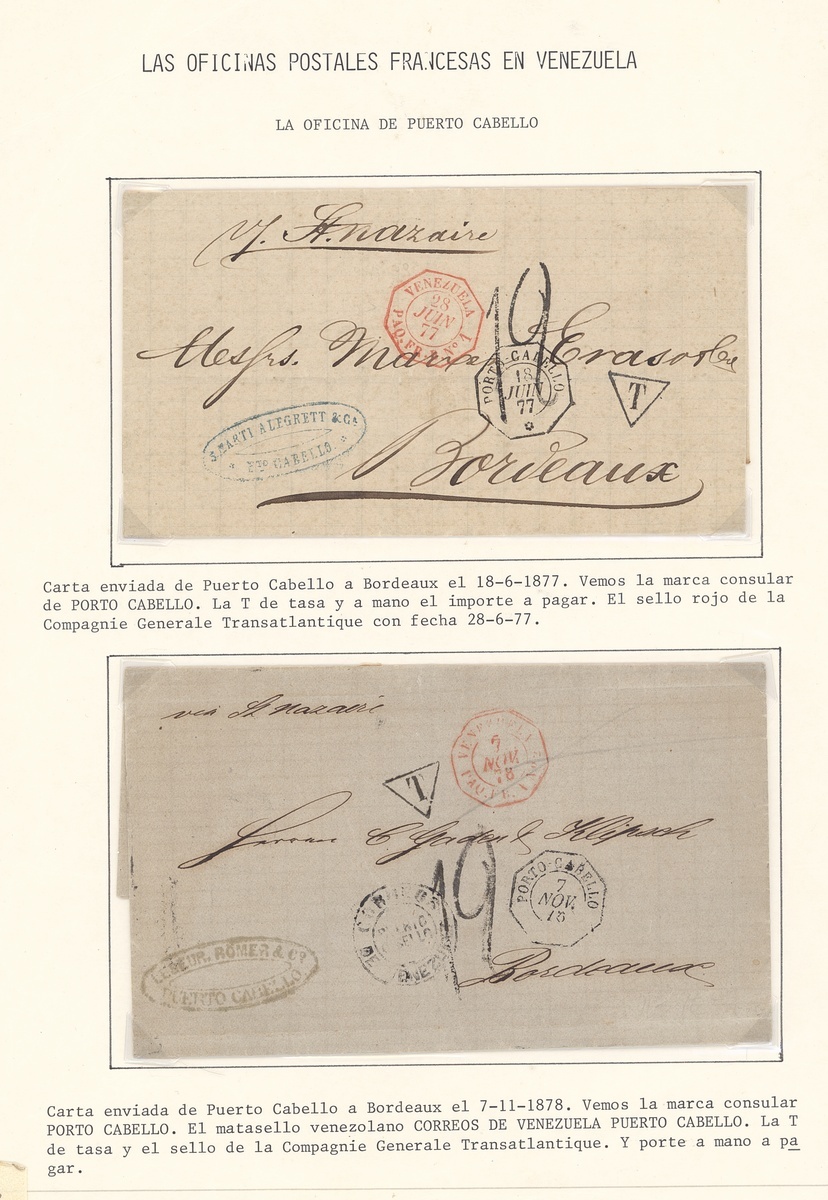 LAS OFICINAS POSTALES FRANCESAS EN VENEZUELA
LA OFICINA DE PUERTO CABELLO
St. nazaire
VENEZUELA
28
JUIN
77
PAQ. FR. A No 1
19
Messrs.
PORTO-CABELLO
18
JUIN
77
T
ALEGRETT & Ca
PTO CABELLO.
Bordeaux
Carta enviada de Puerto Cabello a Bordeaux el 18-6-1877. Vemos la marca consular
de PORTO CABELLO. La T de tasa y a mano el importe a pagar. El sello rojo de la
Compagnie Generale Transatlantique con fecha 28-6-77.
via St nazaire
VENEZUELA
7
NOV.
78
T
Herren C Gaden & Klipsch
19
PORTO-CABELLO
7
NOV.
CORREOS
RÖMER & Co
PUERTO CABELLO
Bordeaux
Carta enviada de Puerto Cabello a Bordeaux el 7-11-1878. Vemos la marca consular
PORTO CABELLO. El matasello venezolano CORREOS DE VENEZUELA PUERTO CABELLO. La T
de tasa y el sello de la Compagnie Generale Transatlantique. Y porte a mano a pa
gar.